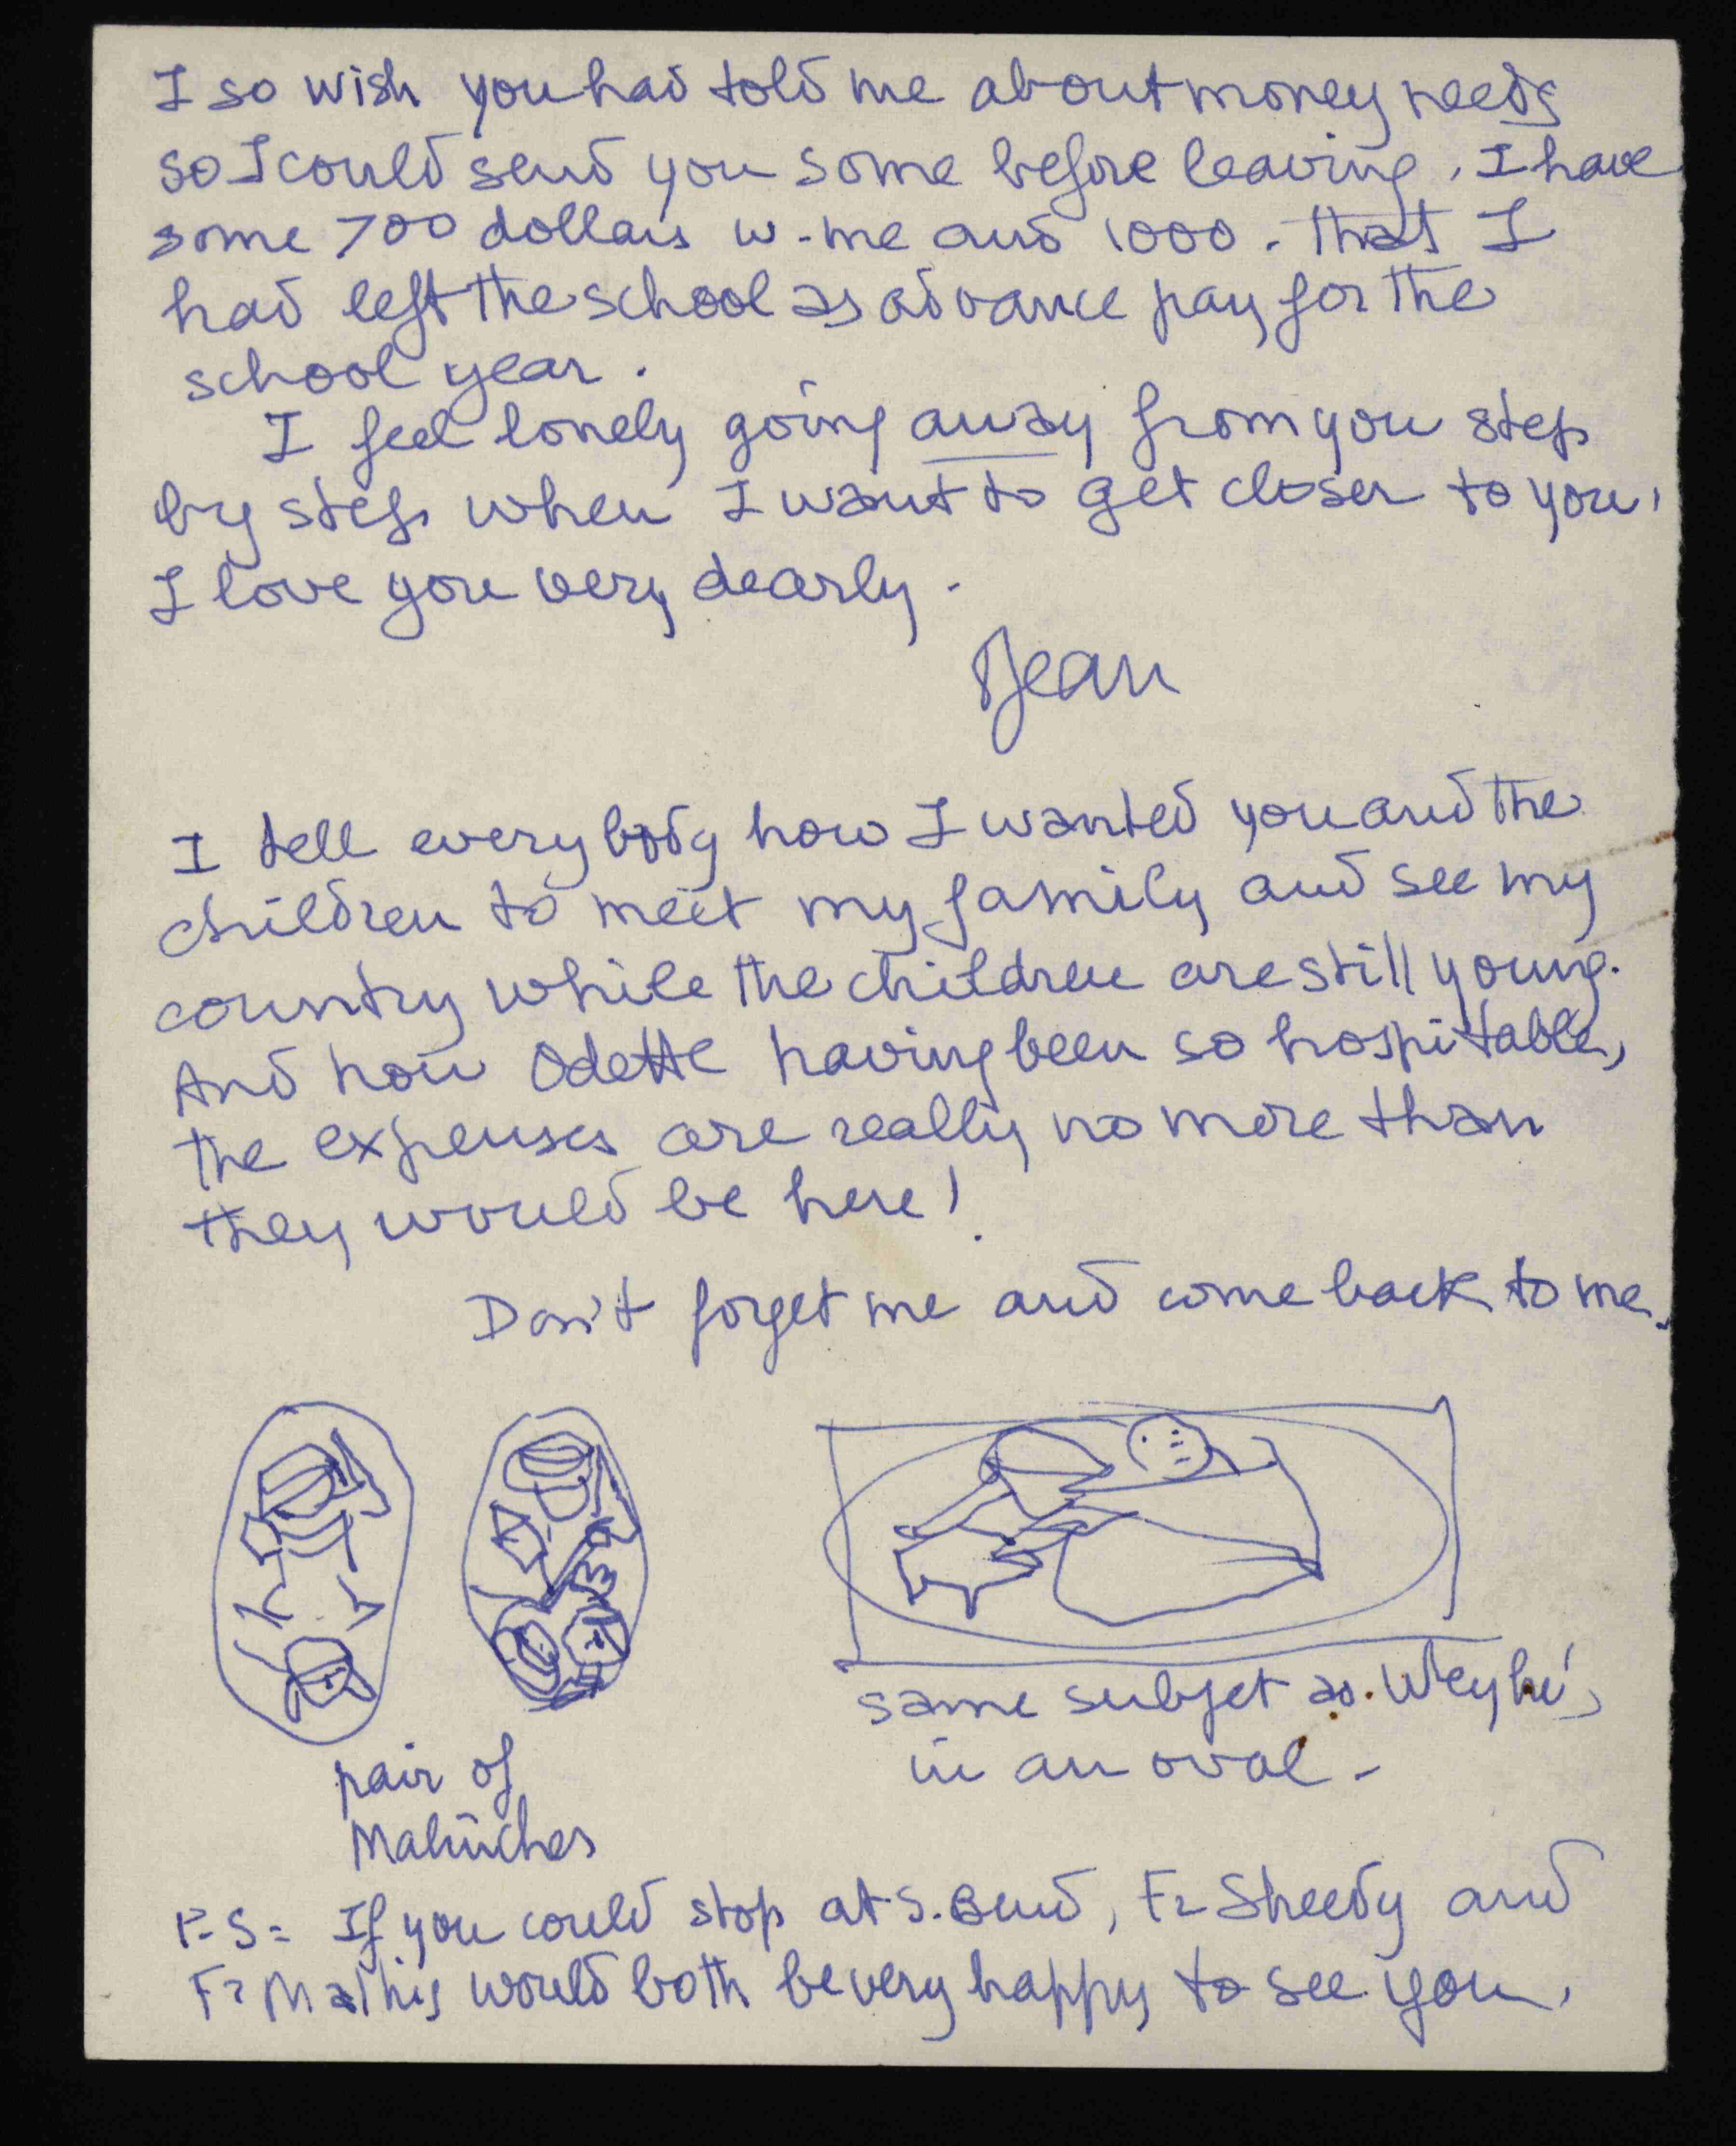 I so wish you had told me about money needs
so I could send you some before leaving. I have
some 700 dollars w. me and 1000. that I
had left the school as advance pay for the
school year.
I feel lonely going away from you step
by step when I want to get closer to you.
I love you very dearly.
Jean
I tell everybody how I wanted you and the
children to meet my family and see my
country while the children are still young.
And now Odette having been so hospitable,
the expenses are really no more than
they would be here!
Don't forget me and come back to me.
same subjet as Weyhe's
in an oval -
pair of
Malinches
P.S: If you could stop at S. Bend, Fr Sheedy and
Fr Mathis would both be very happy to see you.